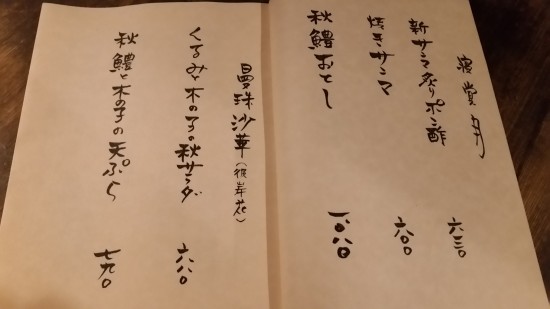 寝覚月
新サンマ炙りポン酢 六三〇
焼きサンマ 六〇〇
秋鱧おとし 一〇八〇
曼珠沙華(彼岸花)
くるみと木の子の秋サラダ 六八〇
秋鱧と木の子の天ぷら 七九〇